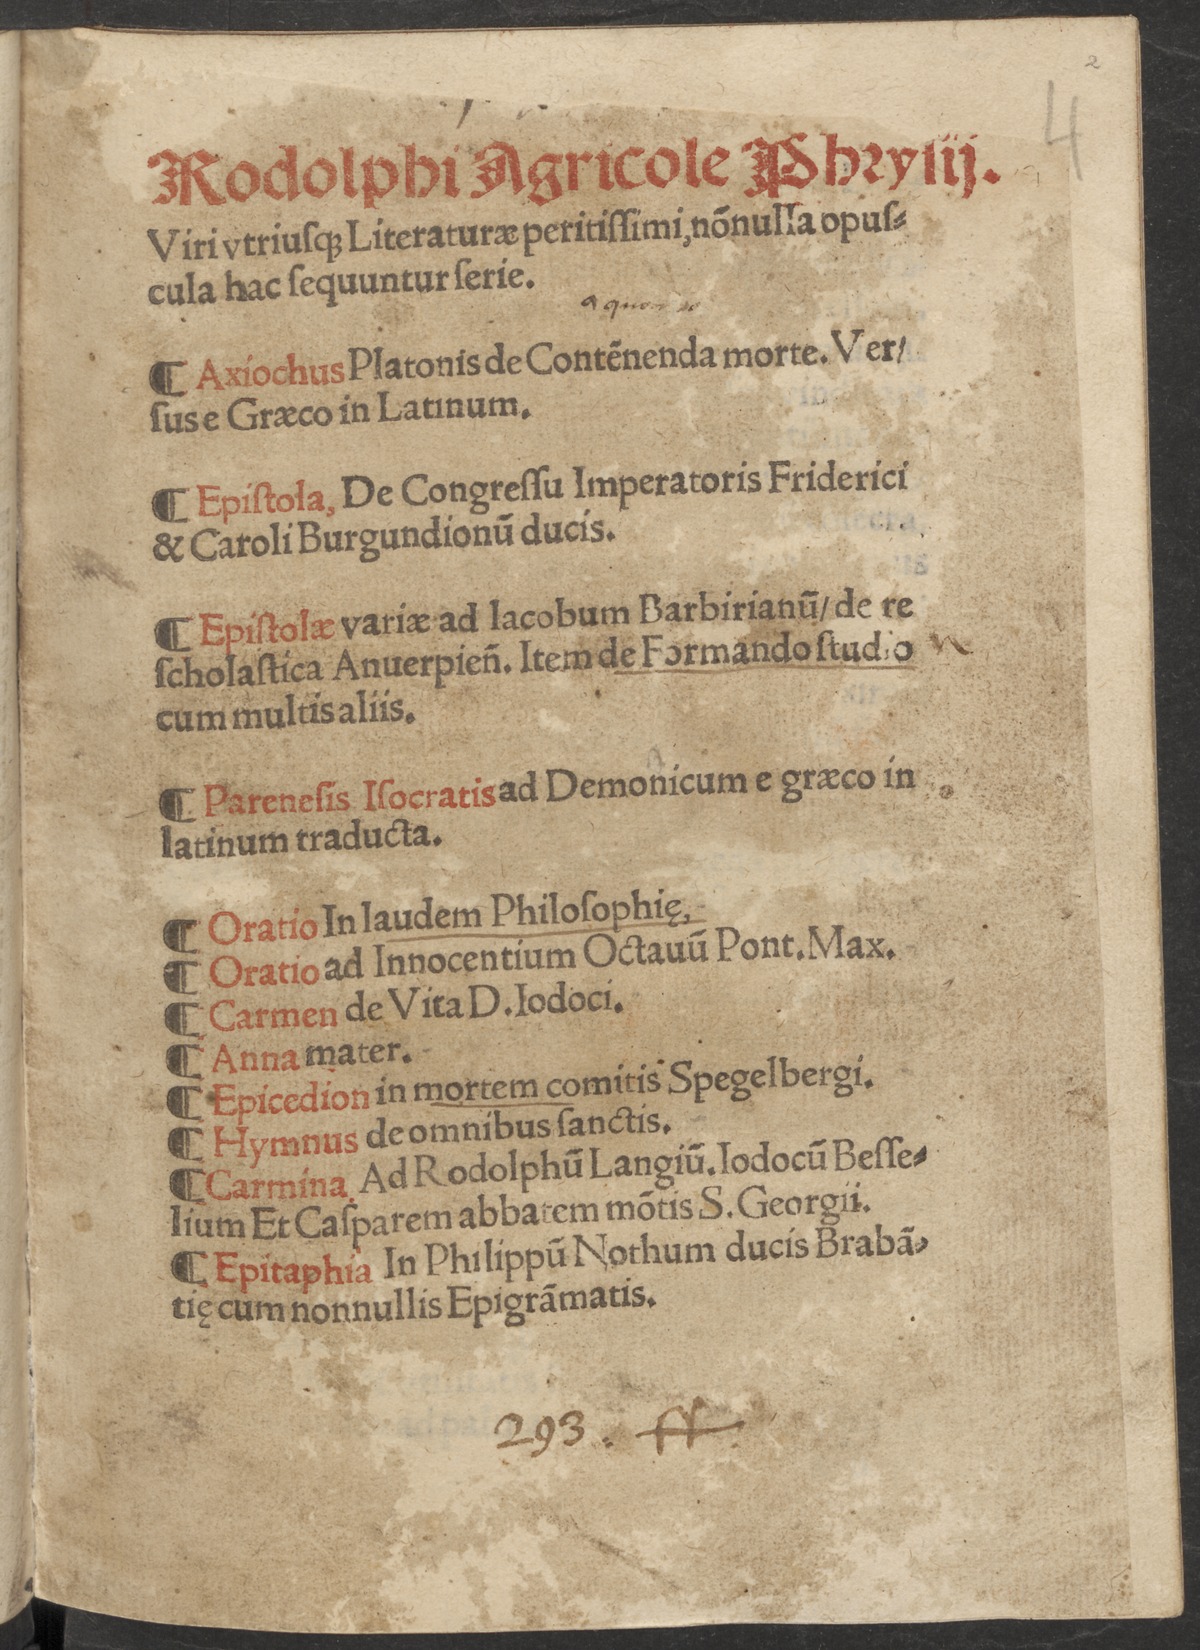 2
4
Rodolphi Agricole Phrysij.
Viri vtriusqꝫ Literaturæ peritissimi, nõnulla opus⸗
cula hac sequuntur serie.
¶ Axiochus Platonis de Contẽnenda morte. Ver/
sus e Græco in Latinum.
¶ Epistola, De Congressu Imperatoris Friderici
& Caroli Burgundionũ ducis.
¶ Epistolæ variæ ad Iacobum Barbirianũ/ de re
scholastica Anuerpieñ. Item de Formando studio
cum multis aliis.
¶ Parenesis Isocratis ad Demonicum e græco in
latinum traducta.
¶ Oratio In laudem Philosophię,
¶ Oratio ad Innocentium Octauũ Pont. Max.
¶ Carmen de Vita D. Iodoci.
¶ Anna mater.
¶ Epicedion in mortem comitis Spegelbergi.
¶ Hymnus de omnibus sanctis.
¶ Carmina. Ad Rodolphũ Langiũ. Iodocũ Besse⸗
lium Et Casparem abbatem mõtis S. Georgii.
¶ Epitaphia In Philippũ Nothum ducis Brabã⸗
tię cum nonnullis Epigrãmatis.
293. ff